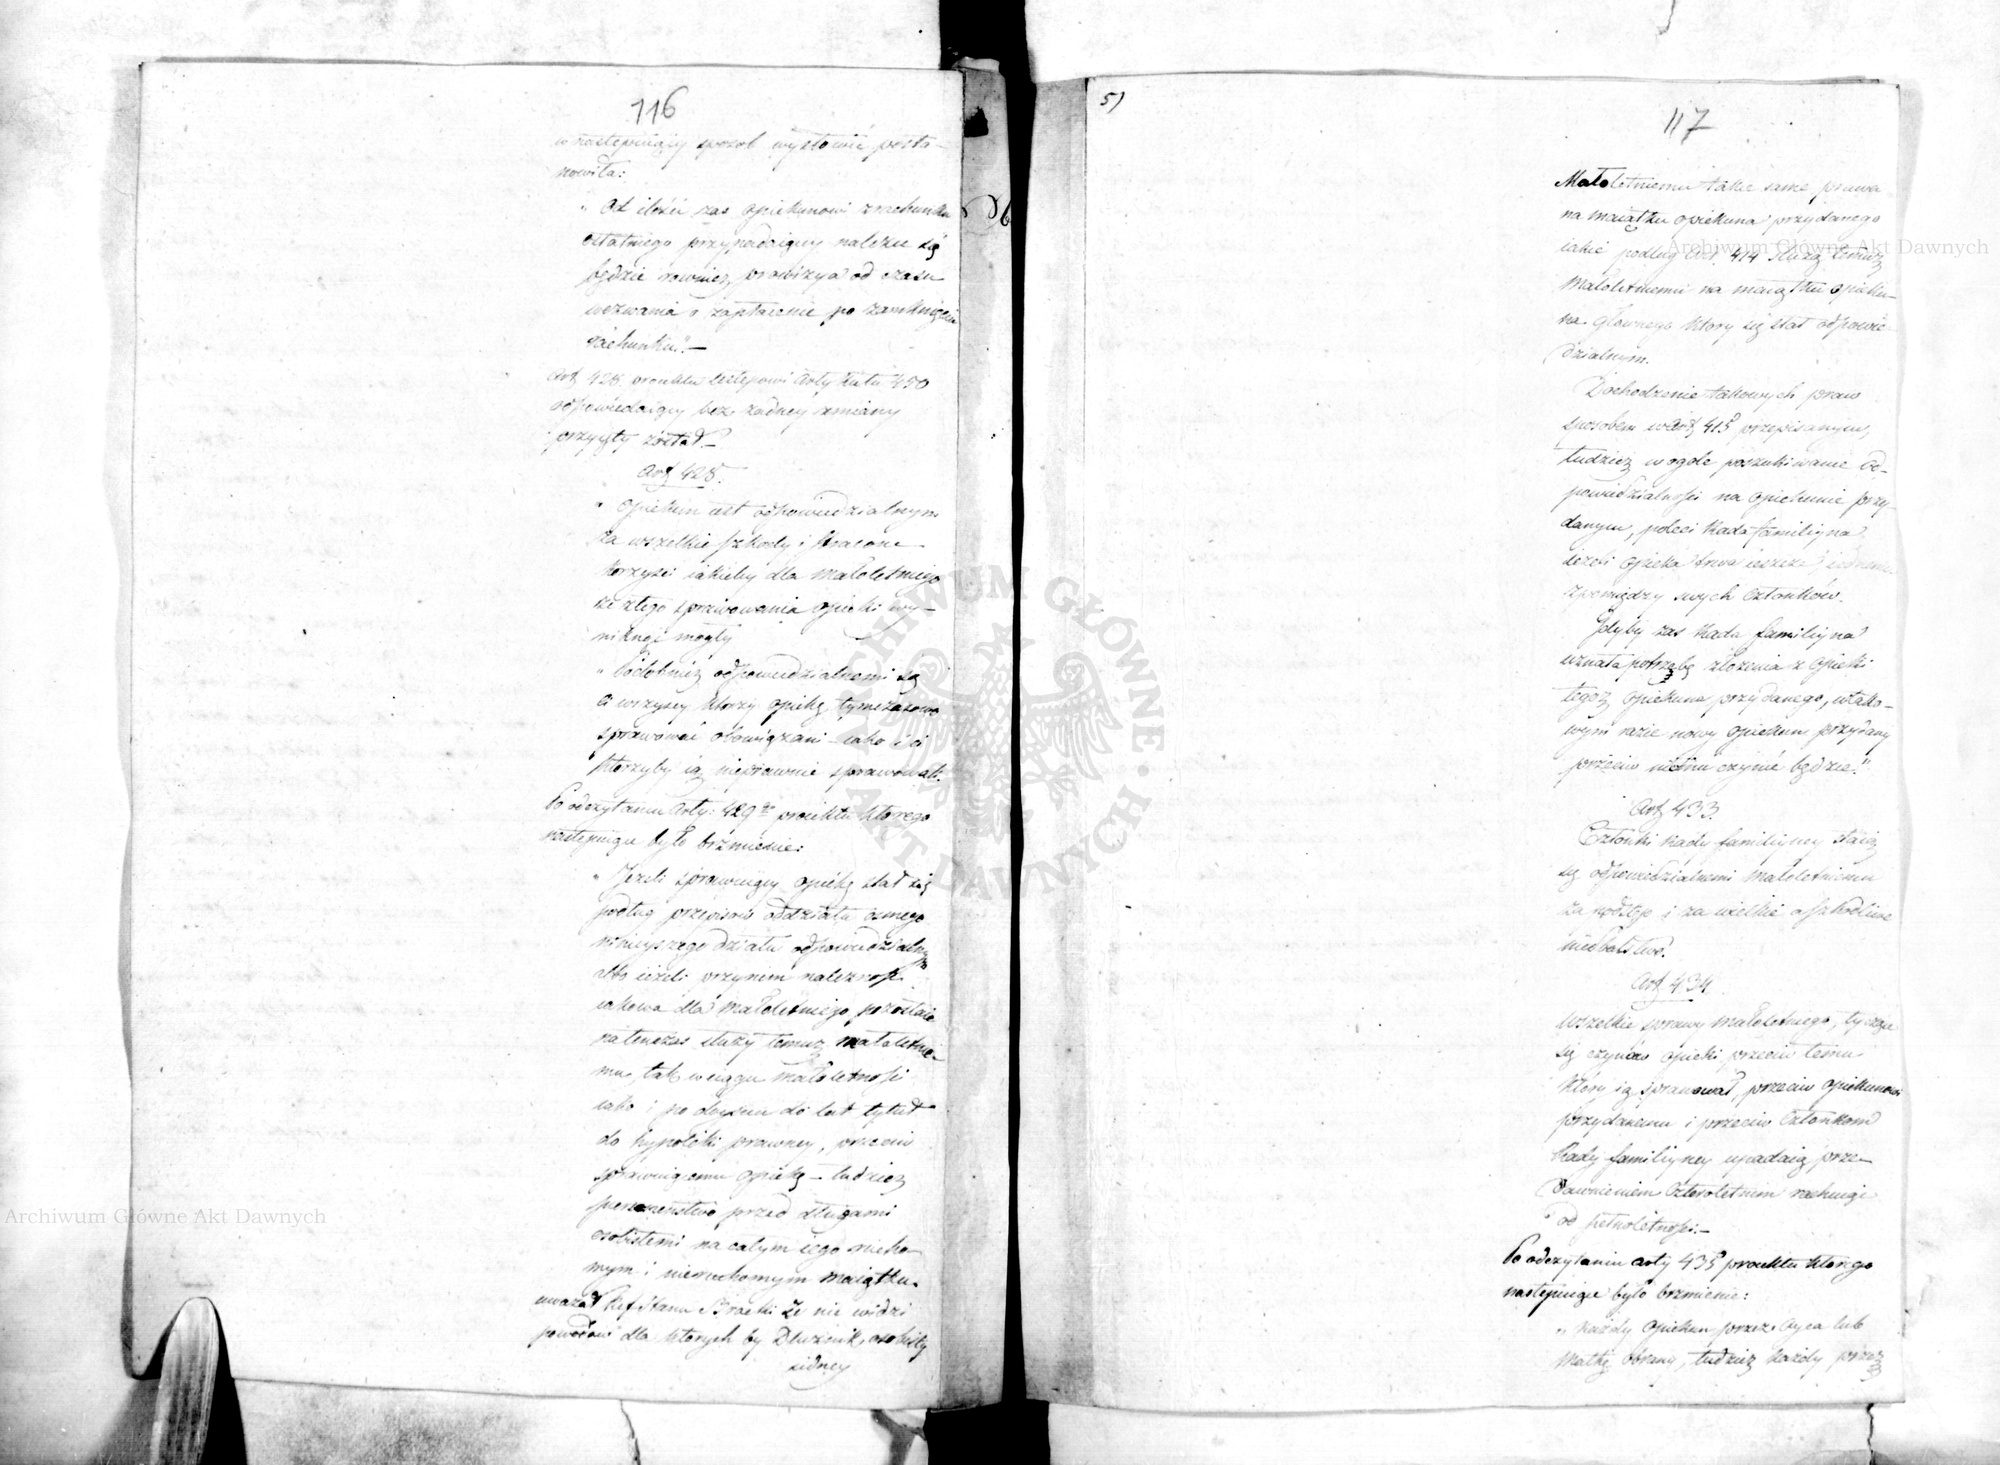 116
w następujący sposob wysłowić posta-
nowiła:
„ Od ilości zas opiekunowi z rachunku
ostatniego przypadaiącey należeć się
będzie rownież prowizya od czasu
wezwania o zapłacenie po zamknięciu
rachunku."—
Art 428. proiektu Artykułu 450
odpowiedaiący bez żadney zmiany
przyięty został.—
Art 428.
„ Opiekun iest odpowiedzialnym
za wszelkie szkody i stracone
korzyści iakieby dla małoletniego
ze złego sprawowania opieki wy-
niknąć mogły
„ Podobnież odpowiedzialnemi są
ci wszyscy ktorzy opiekę tymczasowo
sprawować obowiązani iako i ci
ktorzyby ią nieprawnie sprawowali.
Po odczytaniu Arty: 429go proiektu ktorego
następuiące było brzmienie:
„ Jeżeli sprawuiący opiekę stał się
podług przepisow oddziału osmego
ninieyszego działu odpowiedzialnym
albo ieżeli przy nim należność
iakowa dla małoletniego pozostaie
natenczas służy temuż małoletnie-
mu, tak w ciągu małoletności
iako i po doyściu do lat tytuł
do hypoteki prawney, przeciw
sprawuiącemu opiekę — tudzież
pierwszeństwo przed długami
osobistemi na całym iego rucho-
mym i nieruchomym maiątku.
uważał Ref. Stanu Brocki że nie widzi
powodow dla ktorych by Dłużnik osobisty
iedney
5)
117
Małoletniemu takie same prawa
na maiątku opiekuna przydanego
iakie podług Art. 414 służą temuż
Małoletniemu na maiątku opieku-
na głownego ktory się stał odpowie-
dzialnym.
Dochodzenie takowych praw
sposobem w Art 415 przepisanym,
tudzież w ogole poszukiwanie od-
powiedzialności na opiekunie przy-
danym, poleci Rada familiyna
ieżeli opieka trwa ieszcze iednemu
z pomiędzy swych Członków.
Gdyby zas Rada familiyna
uznała potrzebę złożenia z opieki
tegoż opiekuna przydanego, w tako-
wym razie nowy opiekun przydany
przeciw niemu czynić będzie."
Art 433.
Członki Rady familiyney staią
się odpowiedzialnemi Małoletniemu
za podstęp i za wielkie a szkodliwe
niedbalstwo.
Art 434
Wszelkie sprawy małoletniego, tyczące
się czynów opieki przeciw temu
ktory ią sprawował, przeciw opiekunowi
przydanemu i przeciw Członkom
Rady familiyney upadaią prze-
dawnieniem czteroletnim rachuiąc
od pełnoletności.—
Po odczytaniu arty 435 proiektu ktorego
następuiące było brzmienie:
„ Każdy opiekun przez Oyca lub
Matkę obrany, tudzież każdy przez
Archiwum Główne Akt Dawnych
Archiwum Główne Akt Dawnych
ARCHIWUM GŁÓWNE AKT DAWNYCH